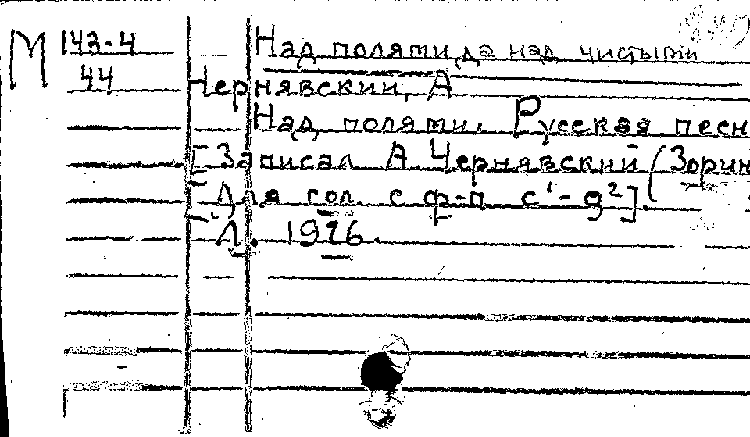 М 143-4 Над полями да над чистыми
44 Чернявский, А
Над полями. Русская песн
[Записал А. Чернявский (Зорин
[Для гол. с ф-п. c¹-g²].
Л. 1926.